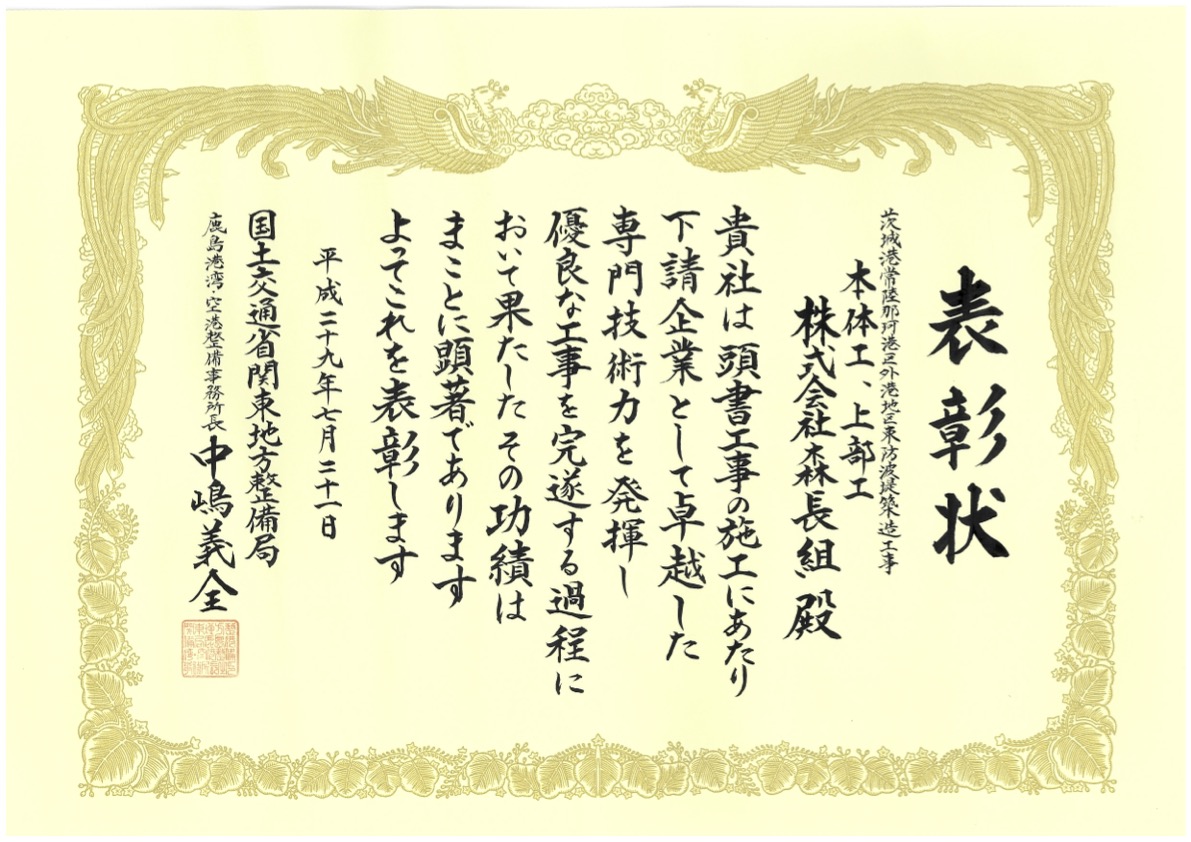 表彰状
茨城港常陸那珂港区外港地区東防波堤築造工事
本体工、上部工
株式会社森長組 殿
貴社は頭書工事の施工にあたり
下請企業として卓越した
専門技術力を発揮し
優良な工事を完遂する過程に
おいて果たしたその功績は
まことに顕著であります
よってこれを表彰します
平成二十九年七月二十一日
国土交通省関東地方整備局
鹿島港湾・空港整備事務所長 中嶋義全